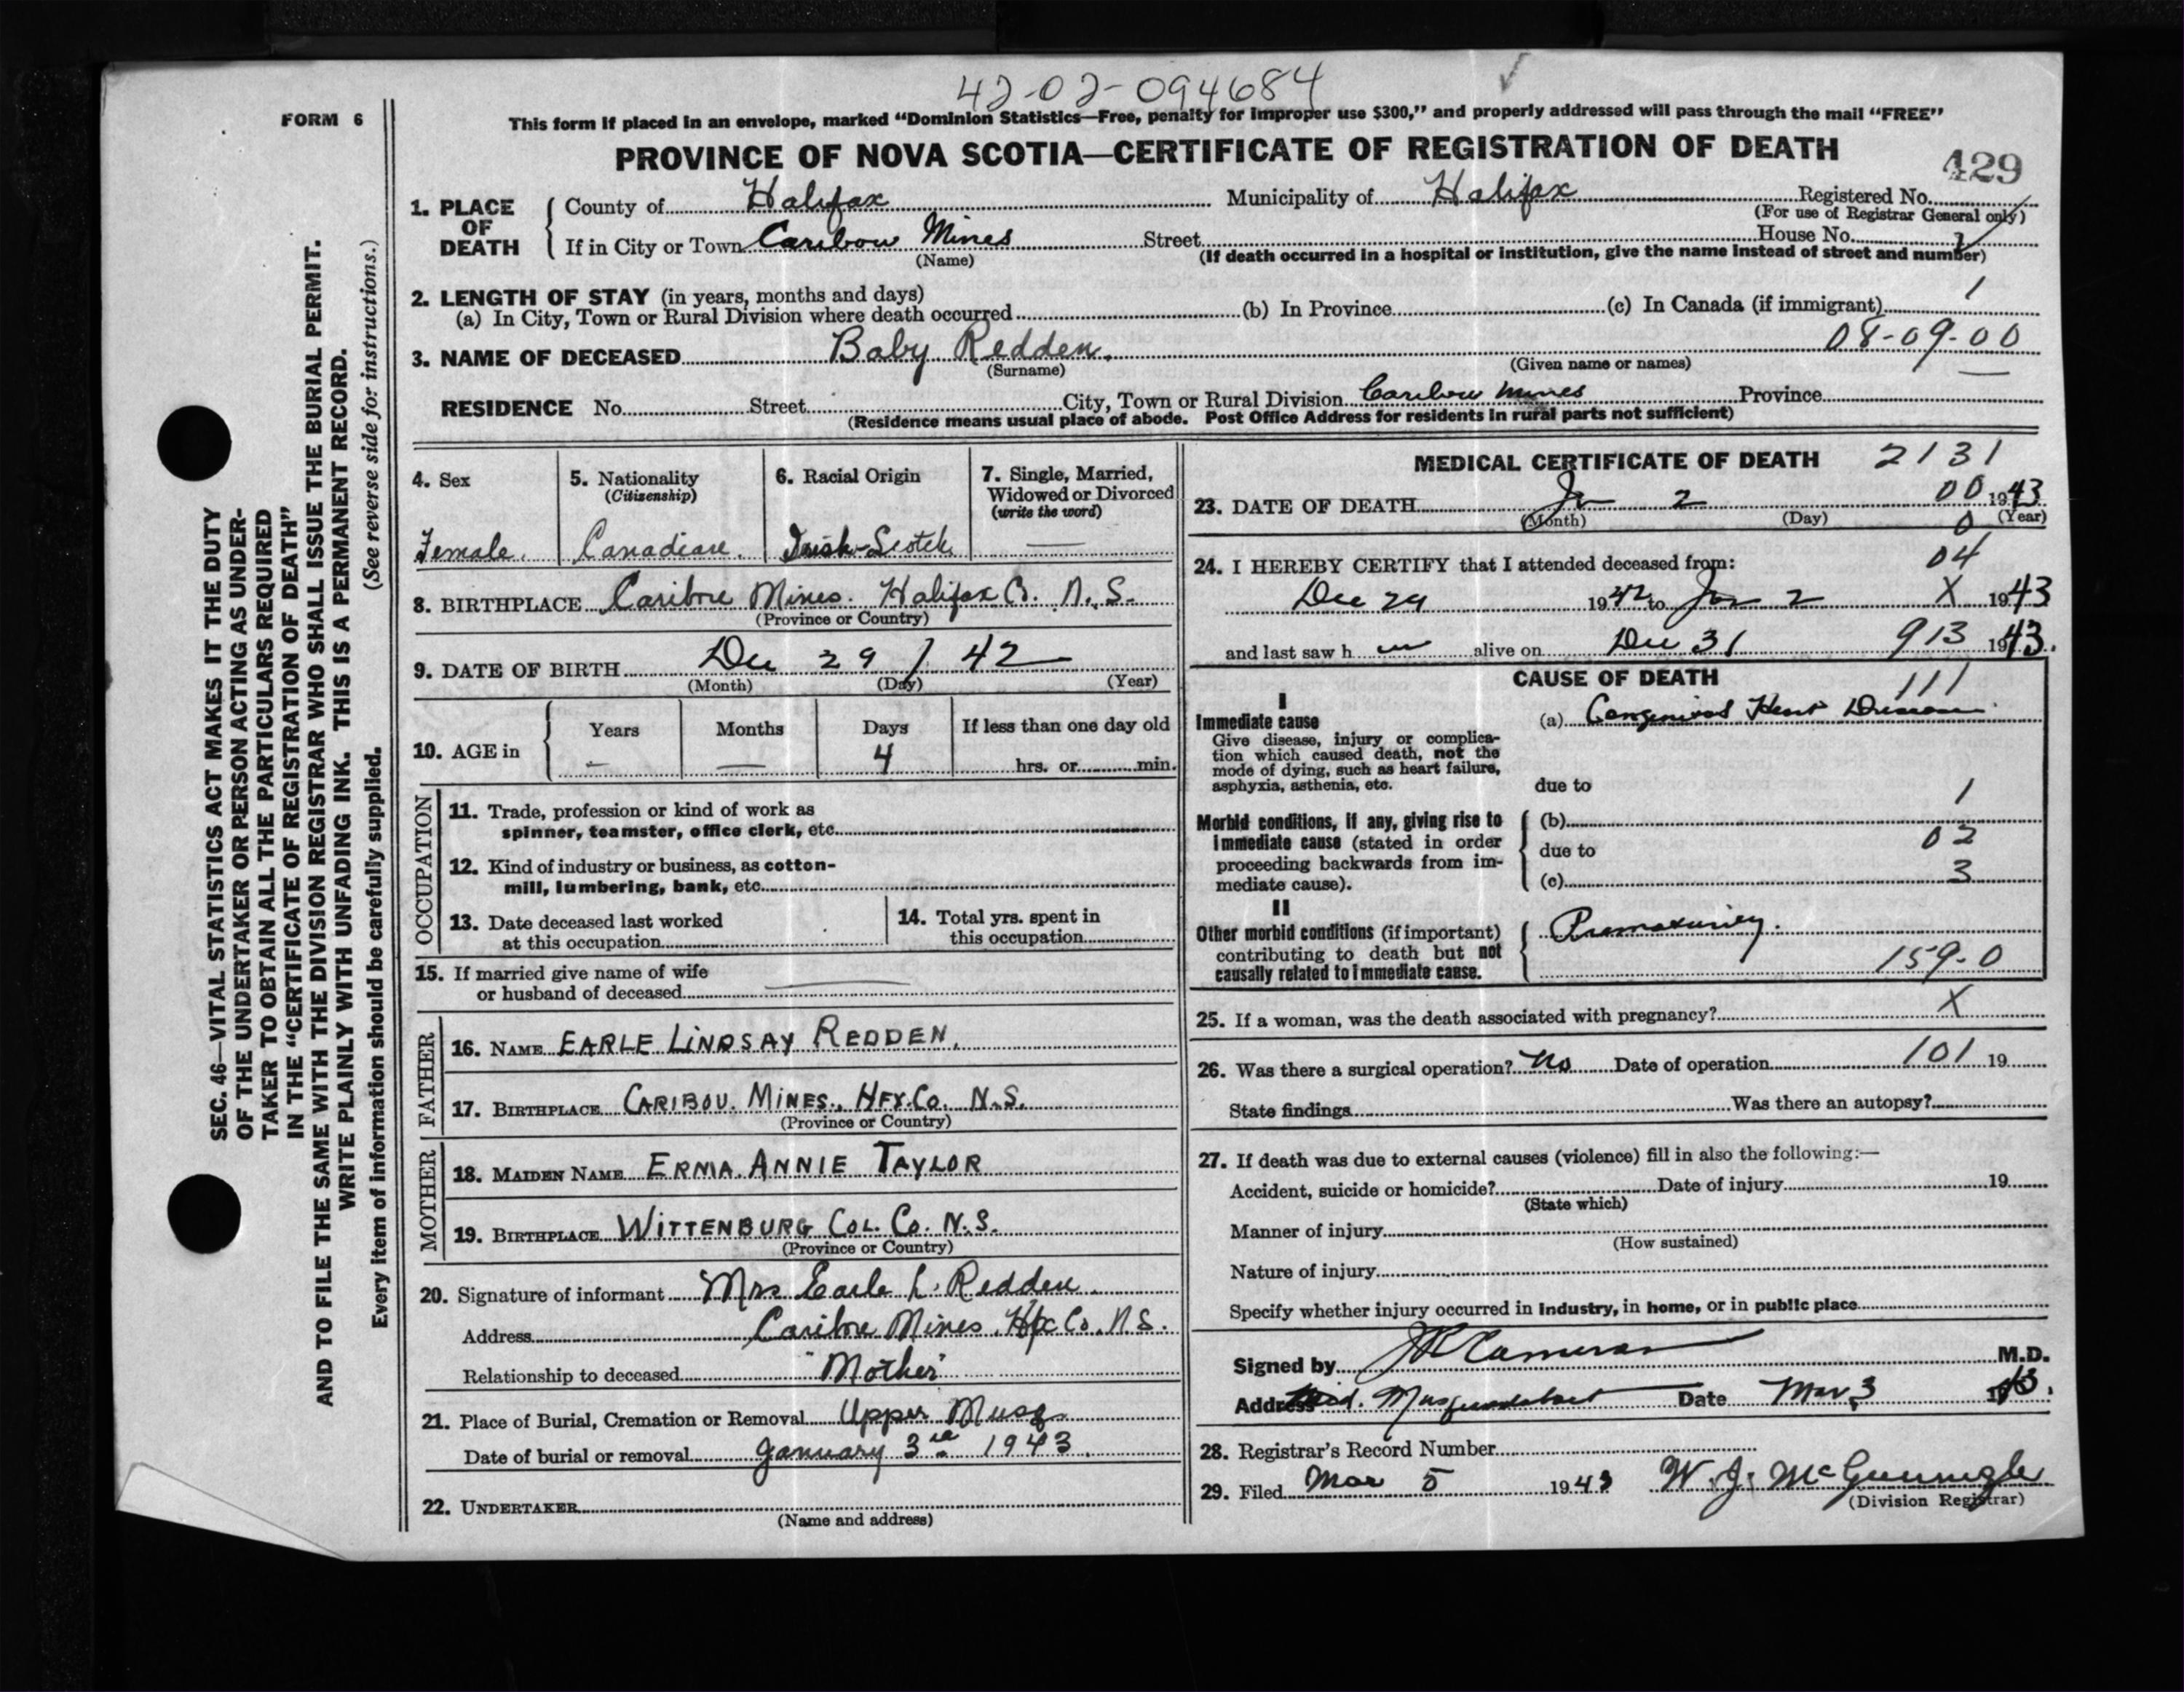 42-02-094684
FORM 6
This form if placed in an envelope, marked "Dominion Statistics—Free, penalty for improper use $300," and properly addressed will pass through the mail "FREE"
PROVINCE OF NOVA SCOTIA—CERTIFICATE OF REGISTRATION OF DEATH
429
1. PLACE OF DEATH
County of Halifax Municipality of Halifax Registered No.
(For use of Registrar General only)
If in City or Town Caribou Mines Street House No.
(Name) (If death occurred in a hospital or institution, give the name instead of street and number)
2. LENGTH OF STAY (in years, months and days) 1
(a) In City, Town or Rural Division where death occurred (b) In Province (c) In Canada (if immigrant)
3. NAME OF DECEASED Baby Redden. 08-09-00
(Surname) (Given name or names)
RESIDENCE No. Street City, Town or Rural Division Caribou Mines Province
(Residence means usual place of abode. Post Office Address for residents in rural parts not sufficient)
4. Sex
Female.
5. Nationality
(Citizenship)
Canadian.
6. Racial Origin
Irish-Scotch
7. Single, Married,
Widowed or Divorced
(write the word)
—
8. BIRTHPLACE Caribou Mines. Halifax Co. N.S.
(Province or Country)
9. DATE OF BIRTH Dec 29 / 42
(Month) (Day) (Year)
10. AGE in
Years Months Days If less than one day old
– — 4 hrs. or min.
OCCUPATION
11. Trade, profession or kind of work as
spinner, teamster, office clerk, etc.
12. Kind of industry or business, as cotton-
mill, lumbering, bank, etc.
13. Date deceased last worked
at this occupation
14. Total yrs. spent in
this occupation
15. If married give name of wife
or husband of deceased —
FATHER
16. NAME EARLE LINDSAY REDDEN.
17. BIRTHPLACE CARIBOU. MINES., HFX. Co. N.S.
(Province or Country)
MOTHER
18. MAIDEN NAME ERMA. ANNIE TAYLOR
19. BIRTHPLACE WITTENBURG COL. Co. N.S.
(Province or Country)
20. Signature of informant Mrs Earle L. Redden.
Address Caribou Mines Hfx Co. N.S.
Relationship to deceased "Mother"
21. Place of Burial, Cremation or Removal Upper Musq.
Date of burial or removal January 3rd 1943.
22. UNDERTAKER
(Name and address)
MEDICAL CERTIFICATE OF DEATH 2131
23. DATE OF DEATH Jan 2 00 1943
(Month) (Day) 0 (Year)
24. I HEREBY CERTIFY that I attended deceased from: 04
Dec 29 1942 to Jan 2 X 1943
and last saw h alive on Dec 31 913 1943.
CAUSE OF DEATH
111
I
Immediate cause
Give disease, injury or complica-
tion which caused death, not the
mode of dying, such as heart failure,
asphyxia, asthenia, etc.
(a) Congenital Heart Disease
due to
1
Morbid conditions, if any, giving rise to
immediate cause (stated in order
proceeding backwards from im-
mediate cause).
(b)
due to 02
(c) 3
II
Other morbid conditions (if important)
contributing to death but not
causally related to immediate cause.
Prematurity.
159-0
25. If a woman, was the death associated with pregnancy? X
26. Was there a surgical operation? No Date of operation 101 19
State findings Was there an autopsy?
27. If death was due to external causes (violence) fill in also the following:—
Accident, suicide or homicide? Date of injury 19
(State which)
Manner of injury
(How sustained)
Nature of injury
Specify whether injury occurred in industry, in home, or in public place
Signed by Cameron M.D.
Address Mid. Musquodoboit Date Mar 3 1943.
28. Registrar's Record Number
29. Filed Mar 5 1943 W. J. McGunnigle
(Division Registrar)
SEC. 46—VITAL STATISTICS ACT MAKES IT THE DUTY
OF THE UNDERTAKER OR PERSON ACTING AS UNDER-
TAKER TO OBTAIN ALL THE PARTICULARS REQUIRED
IN THE "CERTIFICATE OF REGISTRATION OF DEATH"
AND TO FILE THE SAME WITH THE DIVISION REGISTRAR WHO SHALL ISSUE THE BURIAL PERMIT.
WRITE PLAINLY WITH UNFADING INK. THIS IS A PERMANENT RECORD.
Every item of information should be carefully supplied. (See reverse side for instructions.)